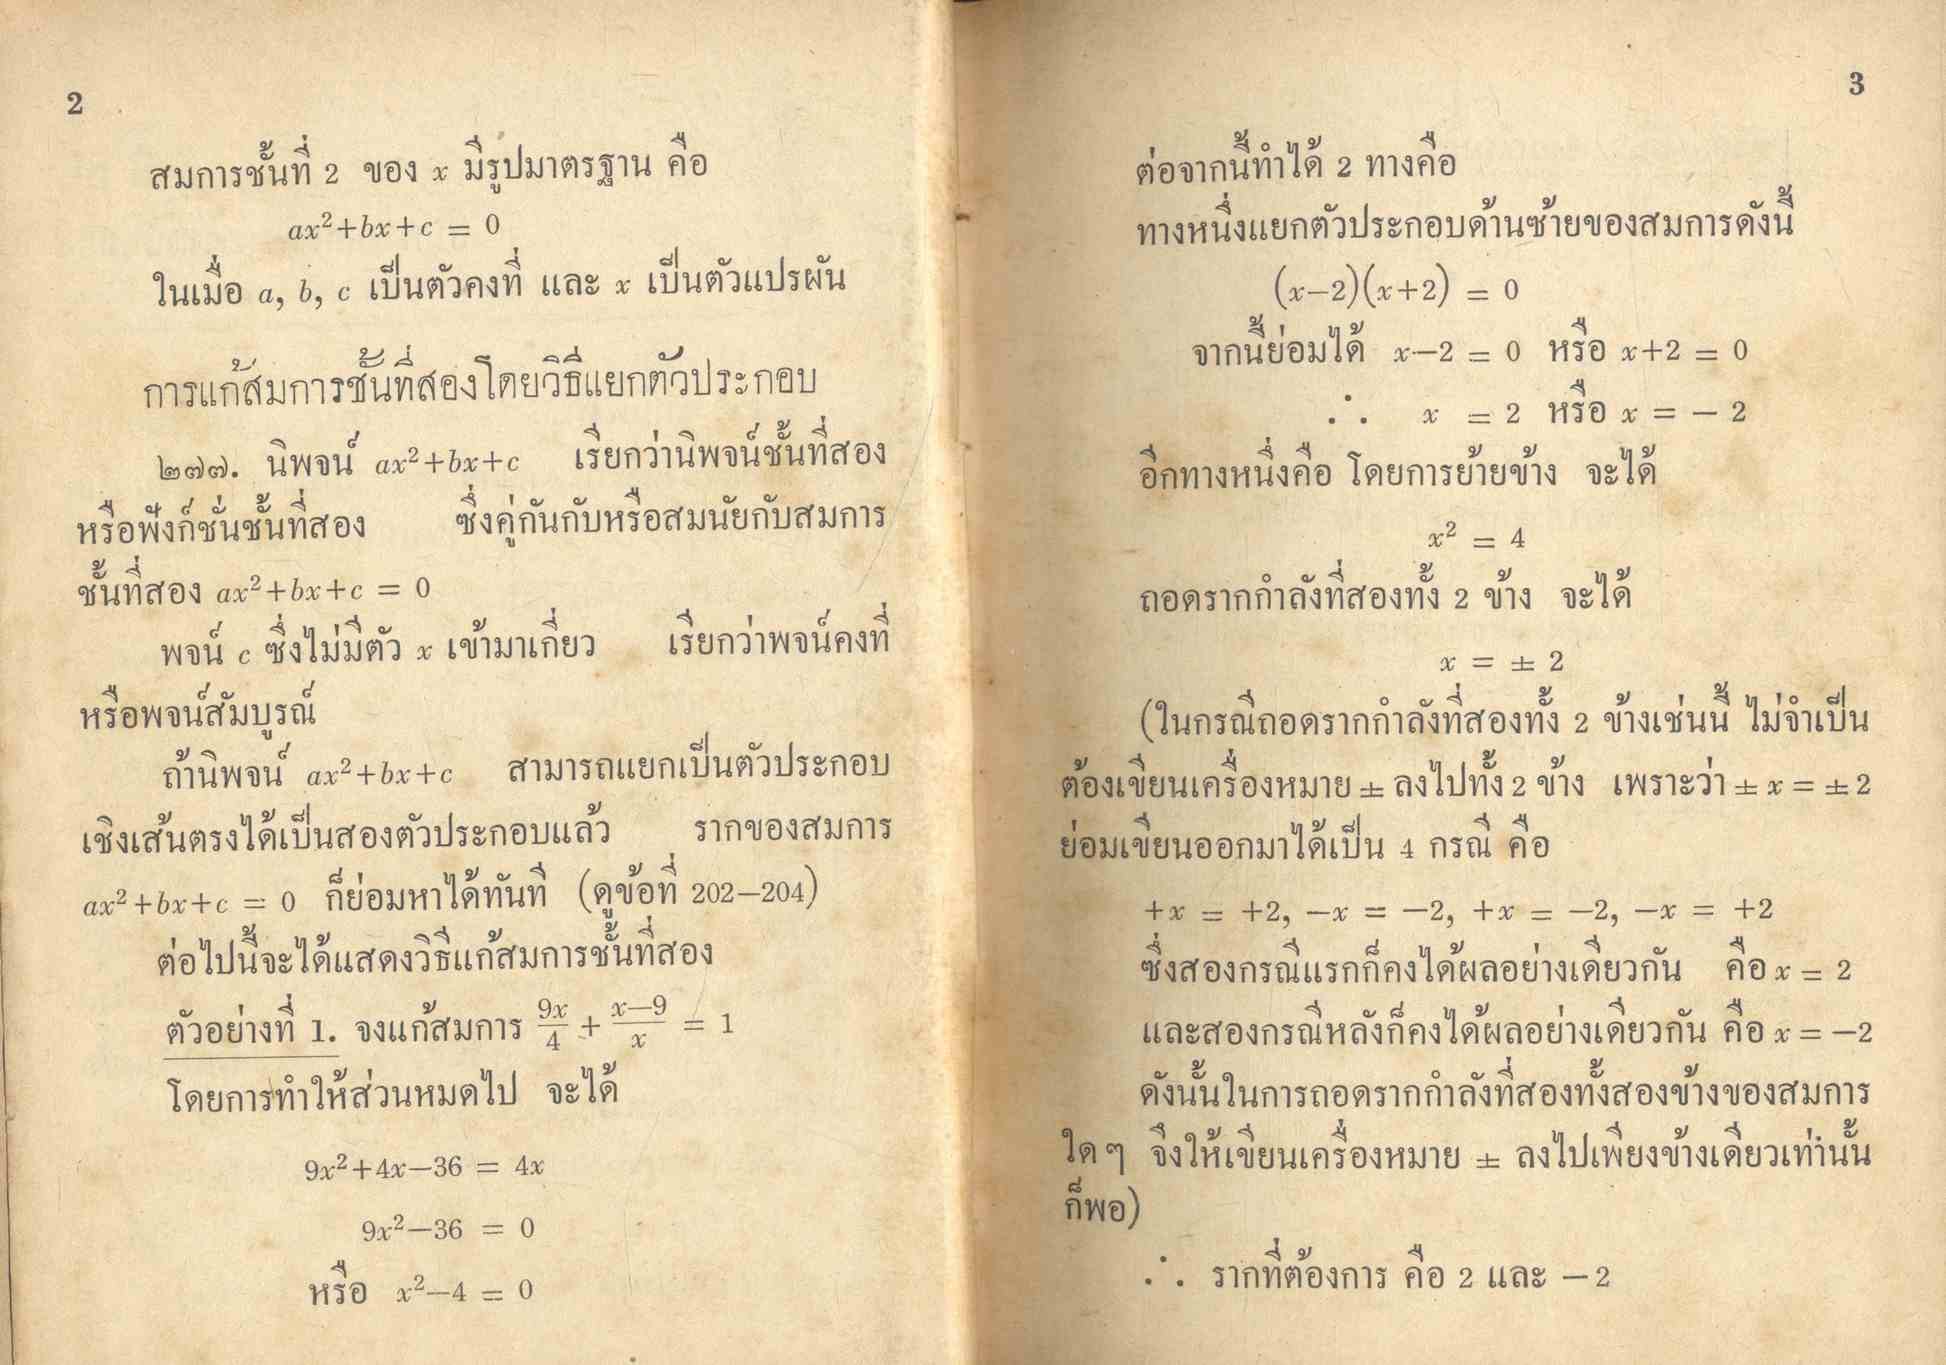 2
สมการชั้นที่ 2 ของ x มีรูปมาตรฐาน คือ
ax²+bx+c = 0
ในเมื่อ a, b, c เป็นตัวคงที่ และ x เป็นตัวแปรผัน
การแก้สมการชั้นที่สองโดยวิธีแยกตัวประกอบ
๒๗๗. นิพจน์ ax²+bx+c เรียกว่านิพจน์ชั้นที่สอง
หรือฟังก์ชั่นชั้นที่สอง ซึ่งคู่กันกับหรือสมนัยกับสมการ
ชั้นที่สอง ax²+bx+c = 0
พจน์ c ซึ่งไม่มีตัว x เข้ามาเกี่ยว เรียกว่าพจน์คงที่
หรือพจน์สัมบูรณ์
ถ้านิพจน์ ax²+bx+c สามารถแยกเป็นตัวประกอบ
เชิงเส้นตรงได้เป็นสองตัวประกอบแล้ว รากของสมการ
ax²+bx+c = 0 ก็ย่อมหาได้ทันที (ดูข้อที่ 202—204)
ต่อไปนี้จะได้แสดงวิธีแก้สมการชั้นที่สอง
ตัวอย่างที่ 1. จงแก้สมการ 9x/4 + x—9/x = 1
โดยการทำให้ส่วนหมดไป จะได้
9x²+4x—36 = 4x
9x²—36 = 0
หรือ x²—4 = 0
3
ต่อจากนี้ทำได้ 2 ทางคือ
ทางหนึ่งแยกตัวประกอบด้านซ้ายของสมการดังนี้
(x—2)(x+2) = 0
จากนี้ย่อมได้ x—2 = 0 หรือ x+2 = 0
∴ x = 2 หรือ x = — 2
อีกทางหนึ่งคือ โดยการย้ายข้าง จะได้
x² = 4
ถอดรากกำลังที่สองทั้ง 2 ข้าง จะได้
x = ± 2
(ในกรณีถอดรากกำลังที่สองทั้ง 2 ข้างเช่นนี้ ไม่จำเป็น
ต้องเขียนเครื่องหมาย ± ลงไปทั้ง 2 ข้าง เพราะว่า ± x = ± 2
ย่อมเขียนออกมาได้เป็น 4 กรณี คือ
+x = +2, —x = —2, +x = —2, —x = +2
ซึ่งสองกรณีแรกก็คงได้ผลอย่างเดียวกัน คือ x = 2
และสองกรณีหลังก็คงได้ผลอย่างเดียวกัน คือ x = —2
ดังนั้นในการถอดรากกำลังที่สองทั้งสองข้างของสมการ
ใด ๆ จึงให้เขียนเครื่องหมาย ± ลงไปเพียงข้างเดียวเท่านั้น
ก็พอ)
∴ รากที่ต้องการ คือ 2 และ — 2